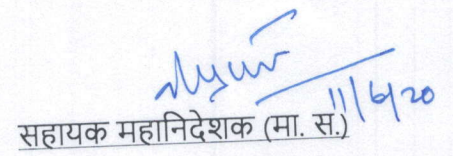 11/6/20
सहायक महानिदेशक (मा. सं.)